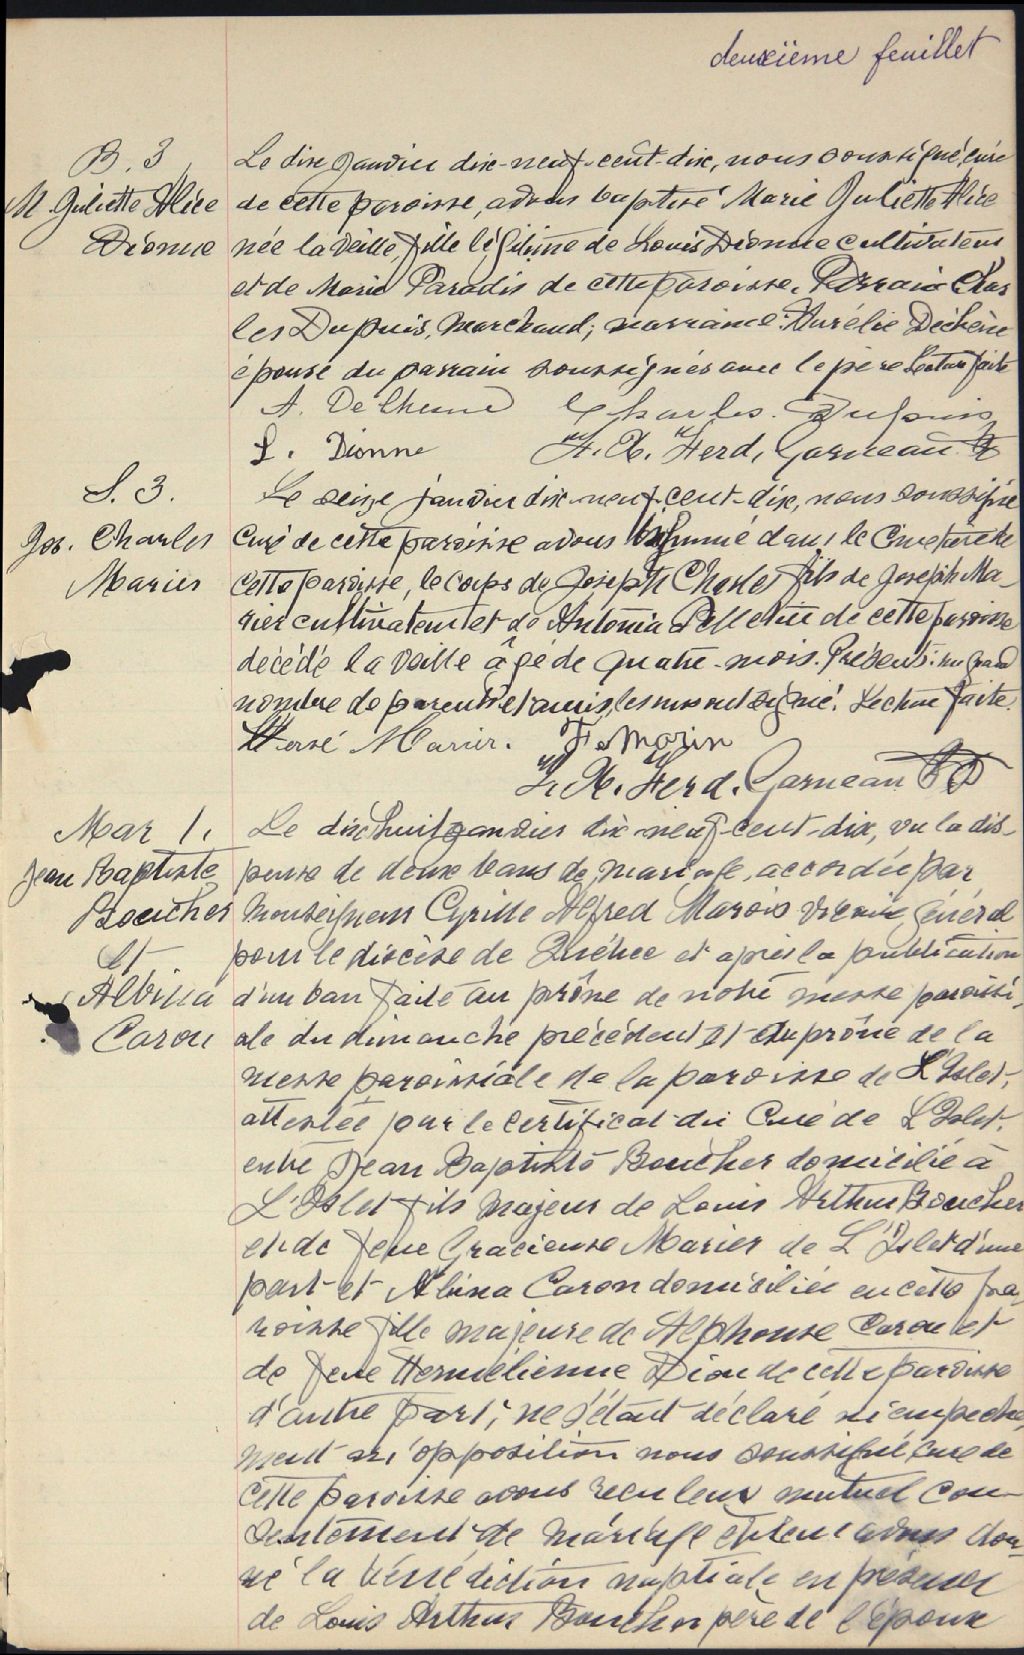 deuxième feuillet
B. 3
M. Juliette Alice
Dionne
Le dix janvier dix-neuf-cent-dix, nous soussigné, curé
de cette paroisse, avons baptisé Marie Juliette Alice
née la veille, fille légitime de Louis Dionne cultivateur
et de Marie Paradis de cette paroisse. Parrain Char
les Dupuis, marchand; marraine: Aurélie Dechêne
épouse du parrain soussignés avec le père Lecture faite
A. DeChene Charles. Dupuis
L. Dionne F. X. Ferd, Garneau
S. 3.
Jos. Charles
Marier
Le seize janvier dix-neuf-cent-dix, nous soussigné
Curé de cette paroisse avons inhumé dans le Cimetière de
cette paroisse, le corps de Joseph Charles fils de Joseph Ma-
rier cultivateur et de Antonia Pelletier de cette paroisse
décédé la veille âgé de quatre-mois. Présents: un grand
nombre de parents et amis, les uns ont signé. Lecture faite.
Hervé Marier. F. Morin
F. X. Ferd. Garneau
Mar 1.
Jean Baptiste
Boucher
Et
Albina
Caron
Le dix-huit janvier dix-neuf-cent-dix, vu la dis-
pense de deux bans de mariage, accordée par
Monseigneur Cyrille Alfred Marois vicaire général
pour le diocèse de Québec et après la publication
d'un ban faite au prône de notre messe paroissi-
ale du dimanche précédent et au prône de la
messe paroissiale de la paroisse de L'Islet,
attestée par le certificat du Curé de L'Islet.
entre Jean Baptiste Boucher domicilié à
L'Islet fils majeur de Louis Arthur Boucher
et de feue Gracieuse Marier de L'Islet d'une
part et Albina Caron domiciliée en cette pa-
roisse fille majeure de Alphonse Caron et
de feue Hermélienne Dion de cette paroisse
d'autre part; ne s'étant déclaré ni empeche-
ment ni opposition nous soussigné curé de
cette paroisse avons reçu leur mutuel con-
sentement de mariage et leur avons don-
né la bénédiction nuptiale en présence
de Louis Arthur Boucher père de l'époux